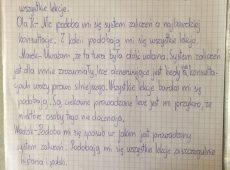 wszystkie lekcje.
Ola K.- Nie podoba mi się system zaliczeń a najbardziej
konsultacje. Z kolei podobają mi się wszystkie lekcje.
Marek- Uważam, że ta tura była dość udana. System zaliczeń
jest dla mnie zrozumiały, lecz denerwujące jest kiedy ta konsulta-
cja wodzi prawo silniejszego. Wszystkie lekcje bardzo mi się
podobają. Są ciekawie prowadzone lecz jest mi przykro, że
niektóre osoby tego nie doceniają.
- Podoba mi się sposób w jakim jest prowadzony
system zaliczeń. Podobają mi się wszystkie lekcje a szczególnie
historia i polski.